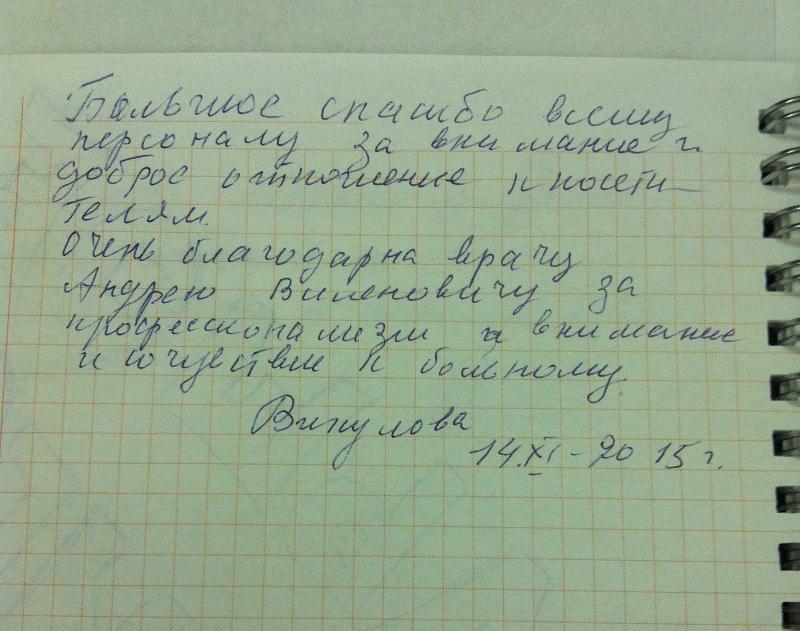 Большое спасибо всему
персоналу за внимание и
доброе отношение к посети-
телям.
Очень благодарна врачу
Андрею Виленовичу за
профессионализм, внимание
и сочувствие к больному.
Викулова
14.XI-2015г.